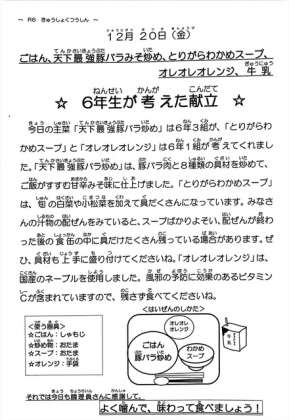 ～ R6 きゅうしょくつうしん ～
12月20日（金）
ごはん、天下最強豚バラみそ炒め、とりがらわかめスープ、
オレオレオレンジ、牛乳
☆ 6年生が考えた献立 ☆
今日の主菜「天下最強豚バラ炒め」は6年3組が、「とりがらわ
かめスープ」と「オレオレオレンジ」は6年1組が考えてくれまし
た。「天下最強豚バラ炒め」は、豚バラ肉と8種類の具材を炒めて、
ご飯がすすむ甘辛みそ味に仕上げました。「とりがらわかめスープ」
は、旬の白菜や小松菜を加えて具だくさんになっています。みなさ
んの汁物の配ぜんをみていると、スープばかりよそい、配ぜんが終わ
った後の食缶の中に具だけたくさん残っている場合があります。ぜ
ひ、具材も上手に盛り付けてくださいね。「オレオレオレンジ」は、
国産のネーブルを使用しました。風邪の予防に効果のあるビタミン
Cが含まれていますので、残さず食べてくださいね。
＜使う器具＞
☆ごはん：しゃもじ
☆炒め物：おたま
☆スープ：おたま
☆オレンジ：手袋
＜はいぜんのしかた＞
オレオレ
オレンジ
牛乳
ごはん
豚バラ炒め
わかめ
スープ
それでは今日も調理員さんに感謝して、
よく噛んで、味わって食べましょう！